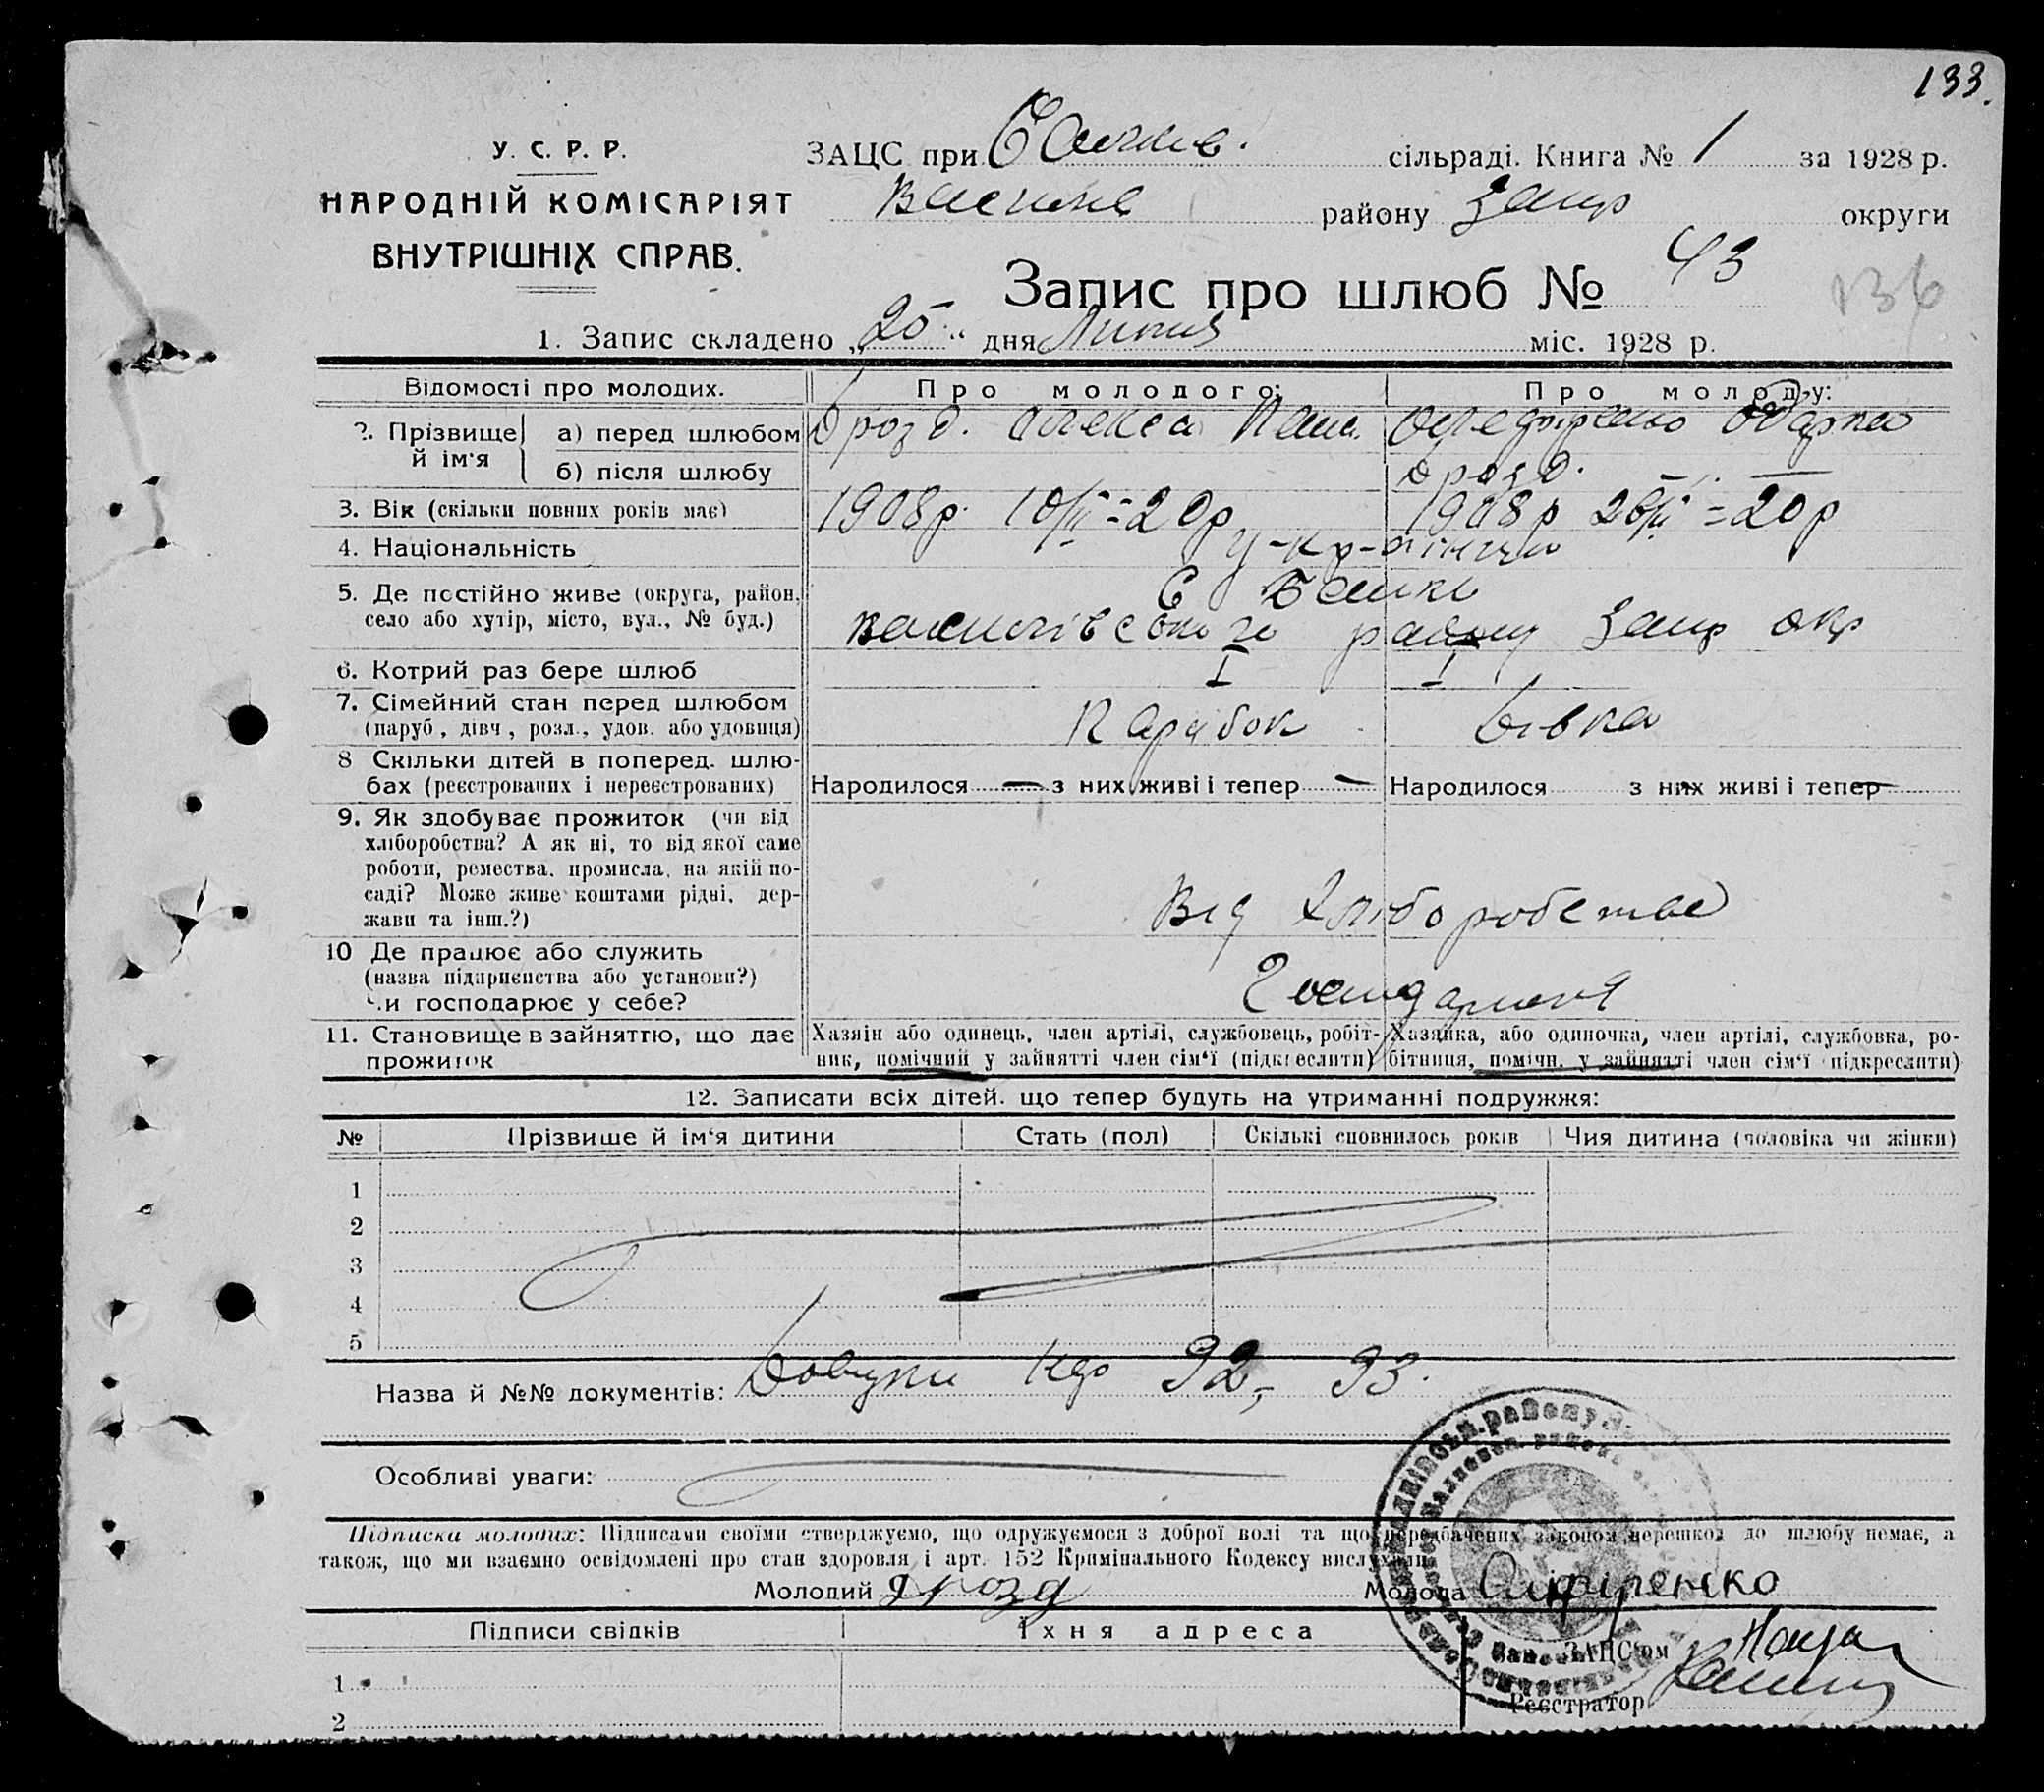 133.
У. С. Р. Р.
НАРОДНІЙ КОМІСАРІЯТ
ВНУТРІШНІХ СПРАВ.
ЗАЦС при сільраді. Книга № 1 за 1928 р.
району Запр округи
Запис про шлюб № 43
136
1. Запис складено „25“ дня Липня міс. 1928 р.
Відомості про молодих. Про молодого: Про молоду:
2. Прізвище й ім‘я а) перед шлюбом Дрозд. Олекса Одарка
б) після шлюбу Дрозд.
3. Вік (скільки повних років має) 1908р. 10/ІІ = 20р 1908р = 20р
4. Національність у-кр-аїнци
5. Де постійно живе (округа, район, С Балки
село або хутір, місто, вул., № буд.) Василівського району Запр окр
6. Котрий раз бере шлюб I I
7. Сімейний стан перед шлюбом
(паруб , дівч , розл., удов. або удовиця) Парубок Дівка
8 Скільки дітей в поперед. шлю-
бах (реєстрованих і нереєстрованих) Народилося — з них живі і тепер — Народилося з них живі і тепер —
9. Як здобуває прожиток (чи від
хліборобства? А як ні, то від якої саме
роботи, ремества, промисла, на якій по-
саді? Може живе коштами рідні, дер-
жави та інш.?) Від Хліборобства
10 Де працює або служить
(назва підприємства або установи?)
Чи господарює у себе?
11. Становище в зайняттю, що дає Хазяїн або одинець, член артілі, службовець, робіт- Хазяйка, або одиночка, член артілі, службовка, ро-
прожиток ник, помічний у зайнятті член сім‘ї (підкреслити) бітниця, помічн. у зайнятті член сім‘ї (підкреслити)
12. Записати всіх дітей, що тепер будуть на утриманні подружжя:
№ Прізвище й ім‘я дитини Стать (пол) Скількі сповнилось років Чия дитина (чоловіка чи жінки)
1
2
3
4
5
Назва й №№ документів: 92, 93.
Особливі уваги:
Підписки молодих: Підписами своїми стверджуємо, що одружуємося з доброї волі та що передбачених законом перешкод до шлюбу немає, а
також, що ми взаємно освідомлені про стан здоровля і арт. 152 Кримінального Кодексу вислухали
Молодий Дрозд Молода
Підписи свідків Їхня адреса
Зав. ЗАЦС‘ом
1
Реєстратор
2